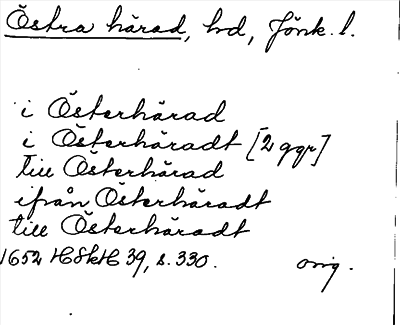 Östra härad, hd, Jönk. l.
i Österhärad
i Österhäradt [2 ggr]
till Österhärad
ifrån Österhäradt
till Österhäradt
1652 HSkH 39, s. 330. orig.